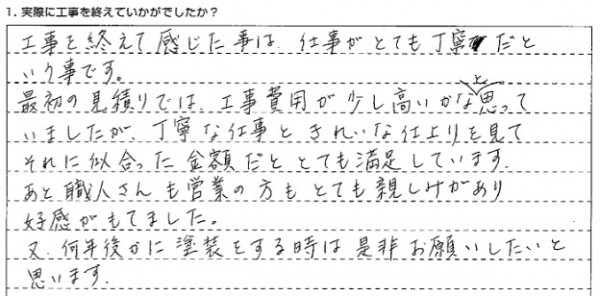 1. 実際に工事を終えていかがでしたか？
工事を終えて感じた事は、仕事がとても丁寧だと
いう事です。
最初の見積りでは、工事費用が少し高いかなと思って
いましたが、丁寧な仕事ときれいな仕上りを見て
それに似合った金額だととても満足しています。
あと職人さんも営業の方もとても親しみがあり
好感がもてました。
又、何年後かに塗装をする時は是非お願いしたいと
思います。